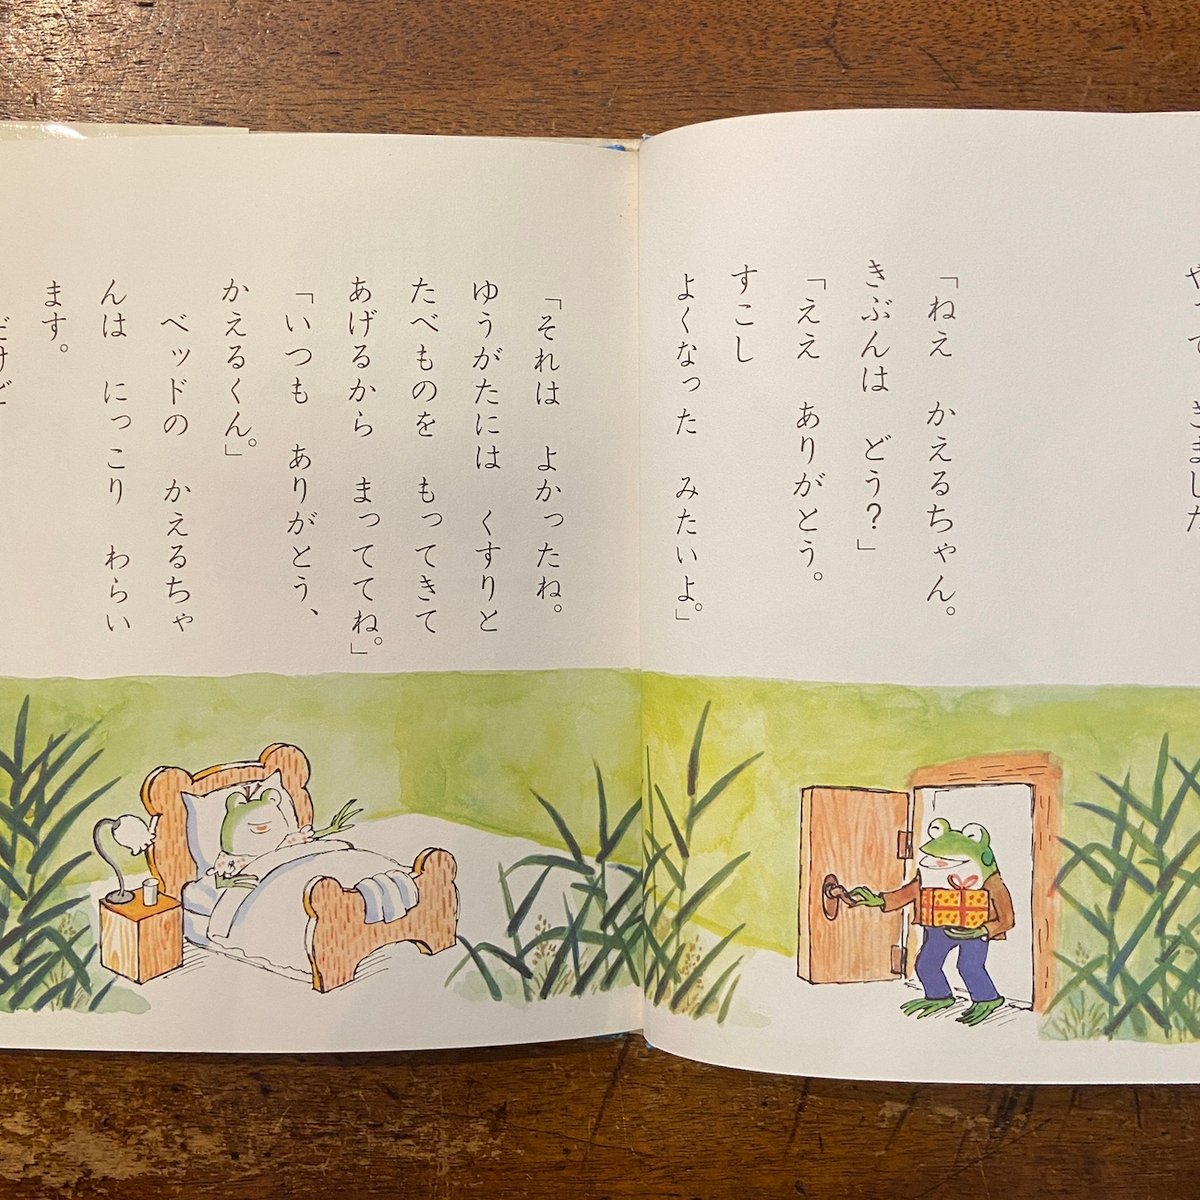 きました
「ねえ　かえるちゃん。
きぶんは　どう？」
「ええ　ありがとう。
すこし
よくなった　みたいよ。」
「それは　よかったね。
ゆうがたには　くすりと
たべものを　もってきて
あげるから　まっててね。」
「いつも　ありがとう、
かえるくん。」
ベッドの　かえるちゃ
んは　にっこり　わらい
ます。
だけど